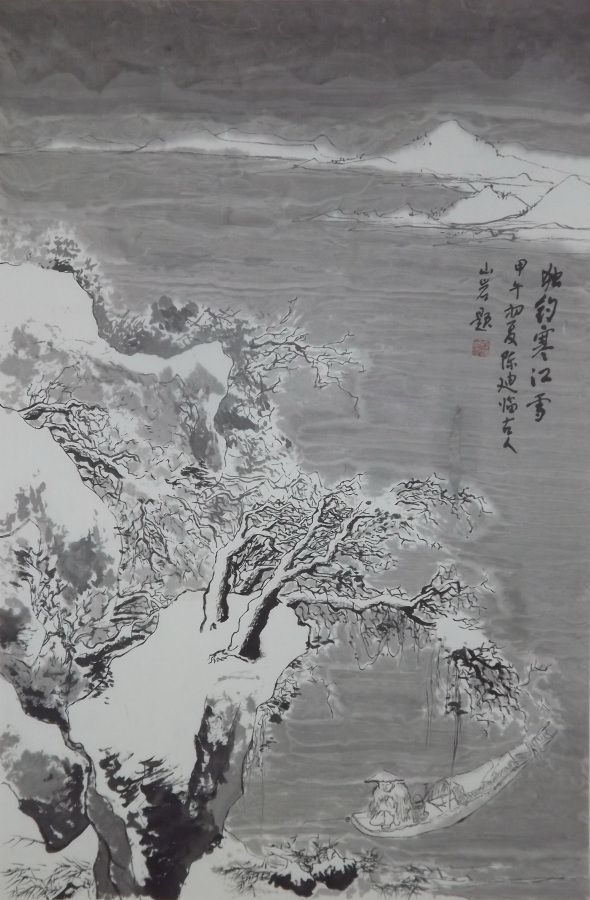 独钓寒江雪
甲午初夏陈迪临古人
山岩题